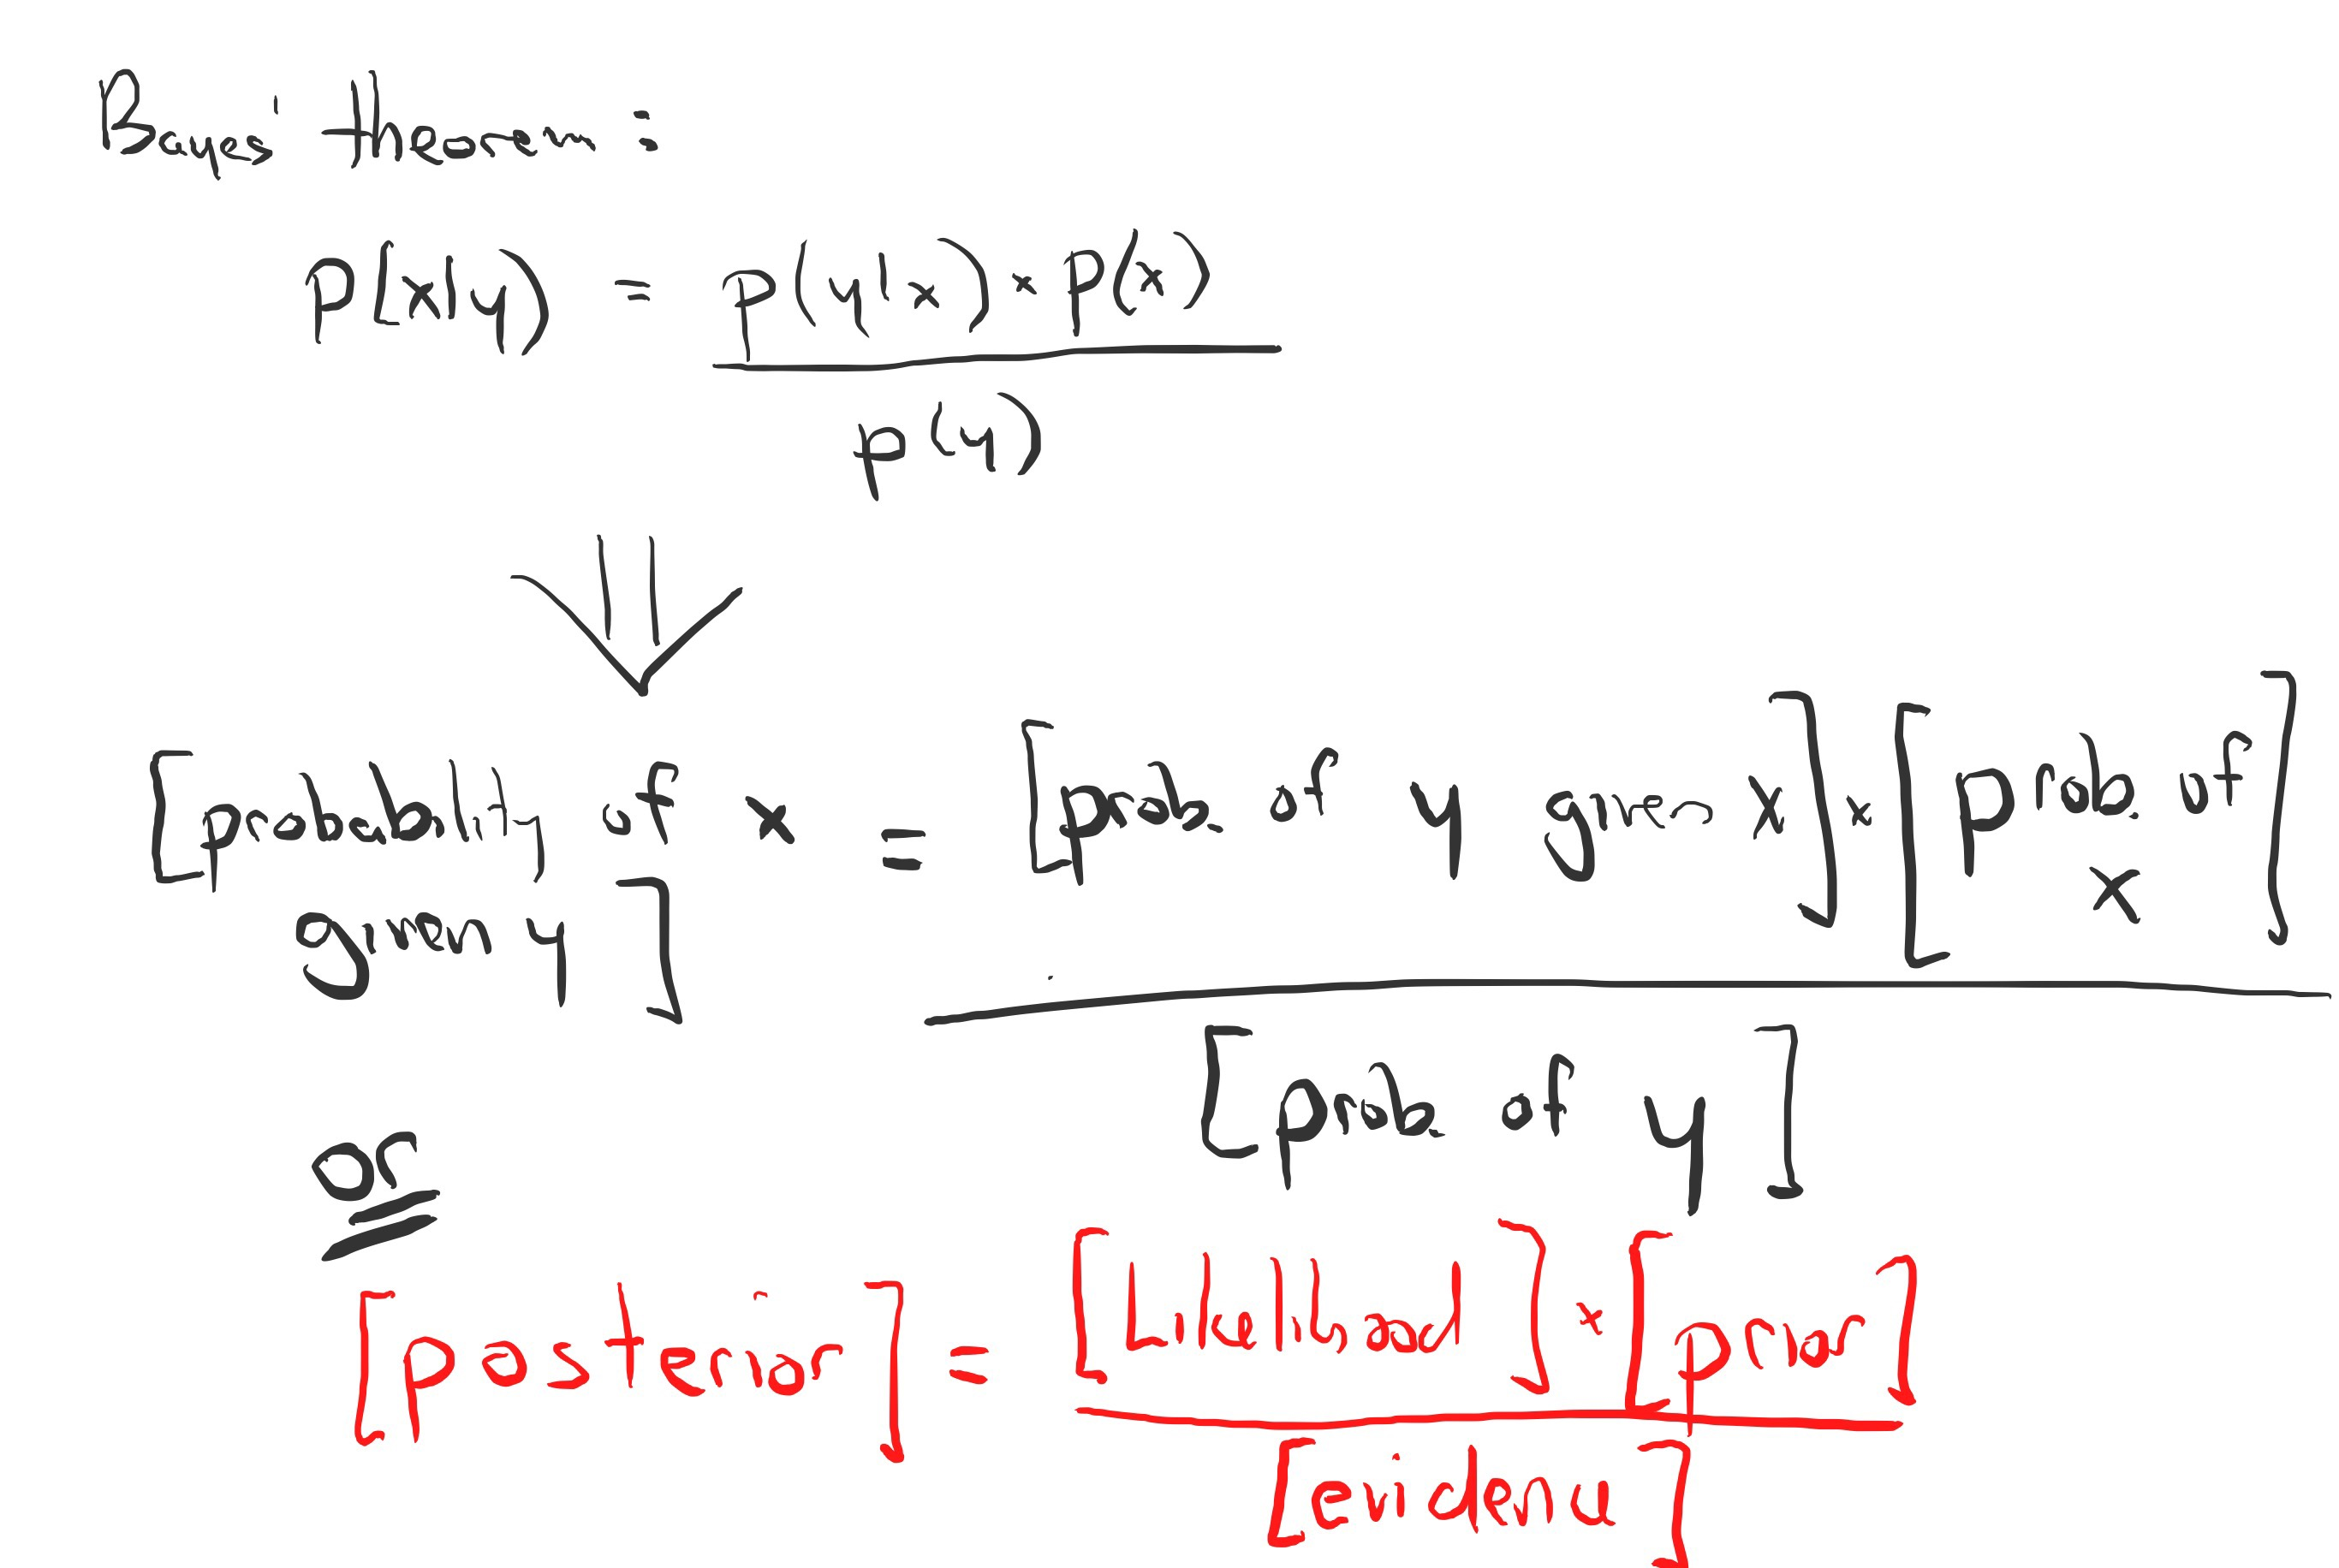 Bayes' theorem:
p(x|y) = p(y|x) × p(x)
p(y)
[probability of x given y] = [prob. of y given x] × [prob of x]
[prob of y]
or
[posterior] = [Likelihood] × [prior]
[evidence]